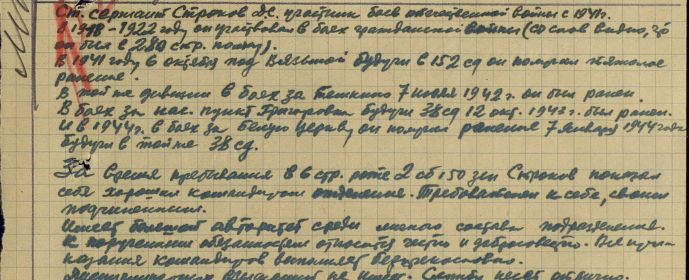 Ст. сержант Строков А.С. участник боев отечественной войны с 1941г.
В 1918-1922 году он участвовал в боях гражданской войны (со слов видно, что
он был в 280 стр. полку).
В 1941 году, 6 октября под Вязьмой будучи в 152 сд он получил тяжелое
ранение.
В той же дивизии в боях за 7 июля 1942 г. он был ранен.
В боях за нас. пункт Григоровка будучи 38 сд 12 окт. 1943 г. был ранен.
И в 1944 г. в боях за Белую Церковь, он получил ранение 7 января 1944 года
будучи в той же 38 сд.
За время пребывания в 6 стр. роте 2 сб 150 зсп Строков показал
себя хорошим командиром отделения. Требователен к себе, своим
подчиненным.
Имеет большой авторитет среди личного состава подразделения.
К порученным обязанностям относится честно и добросовестно. Все
казания командиров выполняет беспрекословно.
взысканий не имеет. Службу несет отлично.